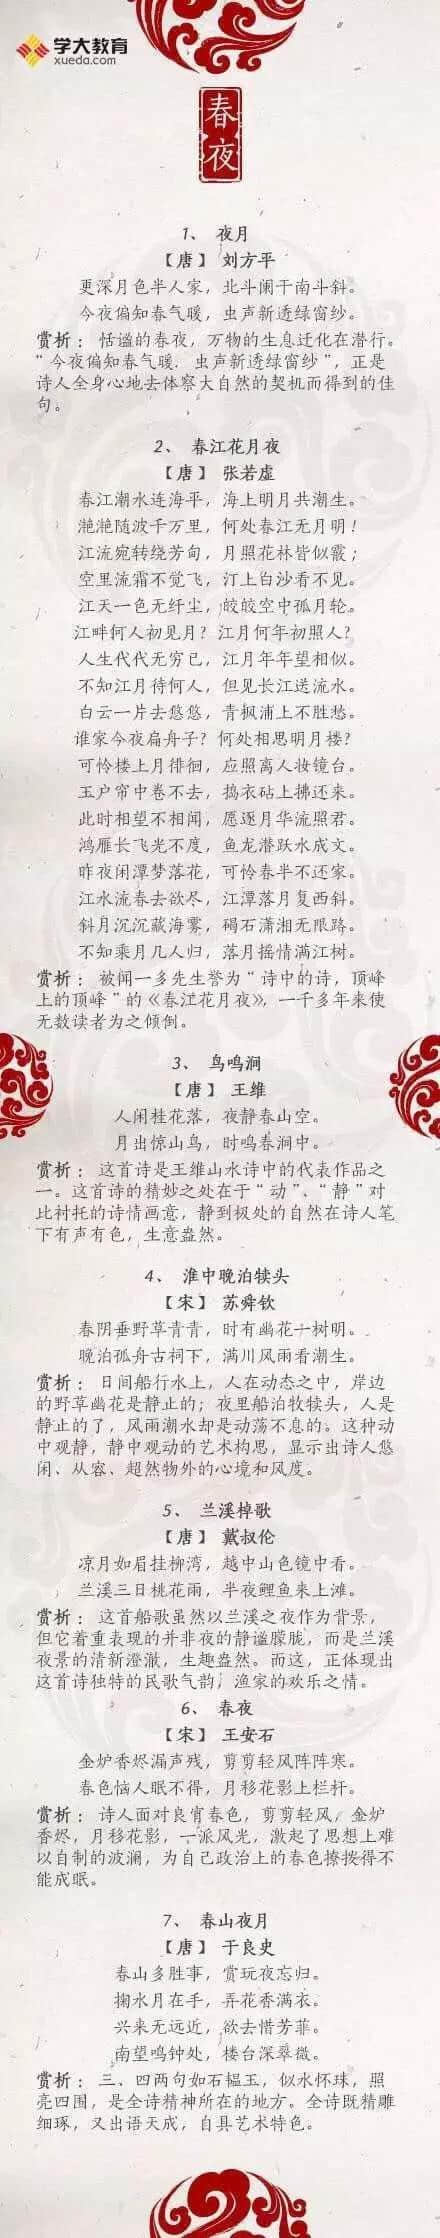 学大教育
xueda.com
春夜
1、 夜月
【唐】 刘方平
更深月色半人家，北斗阑干南斗斜。
今夜偏知春气暖，虫声新透绿窗纱。
赏析： 恬谧的春夜，万物的生息迁化在潜行。
“今夜偏知春气暖，虫声新透绿窗纱”，正是
诗人全身心地去体察大自然的契机而得到的佳
句。
2、 春江花月夜
【唐】 张若虚
春江潮水连海平，海上明月共潮生。
滟滟随波千万里，何处春江无月明！
江流宛转绕芳甸，月照花林皆似霰；
空里流霜不觉飞，汀上白沙看不见。
江天一色无纤尘，皎皎空中孤月轮。
江畔何人初见月？江月何年初照人？
人生代代无穷已，江月年年望相似。
不知江月待何人，但见长江送流水。
白云一片去悠悠，青枫浦上不胜愁。
谁家今夜扁舟子？何处相思明月楼？
可怜楼上月徘徊，应照离人妆镜台。
玉户帘中卷不去，捣衣砧上拂还来。
此时相望不相闻，愿逐月华流照君。
鸿雁长飞光不度，鱼龙潜跃水成文。
昨夜闲潭梦落花，可怜春半不还家。
江水流春去欲尽，江潭落月复西斜。
斜月沉沉藏海雾，碣石潇湘无限路。
不知乘月几人归，落月摇情满江树。
赏析： 被闻一多先生誉为“诗中的诗，顶峰
上的顶峰”的《春江花月夜》，一千多年来使
无数读者为之倾倒。
3、 鸟鸣涧
【唐】 王维
人闲桂花落，夜静春山空。
月出惊山鸟，时鸣春涧中。
赏析： 这首诗是王维山水诗中的代表作品之
一。这首诗的精妙之处在于“动”、“静”对
比衬托的诗情画意，静到极处的自然在诗人笔
下有声有色，生意盎然。
4、 淮中晚泊犊头
【宋】 苏舜钦
春阴垂野草青青，时有幽花一树明。
晚泊孤舟古祠下，满川风雨看潮生。
赏析： 日间船行水上，人在动态之中，岸边
的野草幽花是静止的；夜里船泊牧犊头，人是
静止的了，风雨潮水却是动荡不息的。这种动
中观静，静中观动的艺术构思，显示出诗人悠
闲、从容、超然物外的心境和风度。
5、 兰溪棹歌
【唐】 戴叔伦
凉月如眉挂柳湾，越中山色镜中看。
兰溪三日桃花雨，半夜鲤鱼来上滩。
赏析： 这首船歌虽然以兰溪之夜作为背景，
但它着重表现的并非夜的静谧朦胧，而是兰溪
夜景的清新澄澈，生趣盎然。而这，正体现出
这首诗独特的民歌气韵，渔家的欢乐之情。
6、 春夜
【宋】 王安石
金炉香烬漏声残，剪剪轻风阵阵寒。
春色恼人眠不得，月移花影上栏杆。
赏析： 诗人面对良宵春色，剪剪轻风，金炉
香烬，月移花影，一派风光，激起了思想上难
以自制的波澜，为自己政治上的春色撩拨得不
能成眠。
7、 春山夜月
【唐】 于良史
春山多胜事，赏玩夜忘归。
掬水月在手，弄花香满衣。
兴来无远近，欲去惜芳菲。
南望鸣钟处，楼台深翠微。
赏析： 三、四两句如石韫玉，似水怀珠，照
亮四围，是全诗精神所在的地方。全诗既精雕
细琢，又出语天成，自具艺术特色。